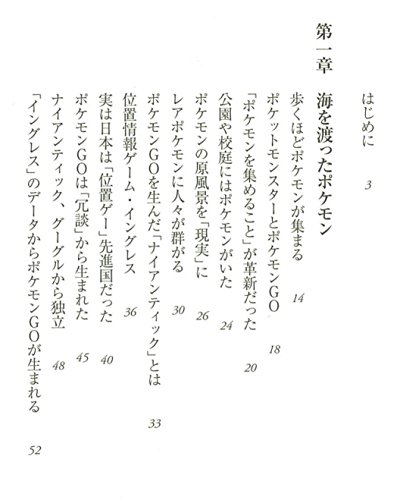 はじめに 3
第一章 海を渡ったポケモン
歩くほどポケモンが集まる 14
ポケットモンスターとポケモンGO 18
「ポケモンを集めること」が革新だった 20
公園や校庭にはポケモンがいた 24
ポケモンの原風景を「現実」に 26
レアポケモンに人々が群がる 30
ポケモンGOを生んだ「ナイアンティック」とは 33
位置情報ゲーム・イングレス 36
実は日本は「位置ゲー」先進国だった 40
ポケモンGOは「冗談」から生まれた 45
ナイアンティック、グーグルから独立 48
「イングレス」のデータからポケモンGOが生まれる 52